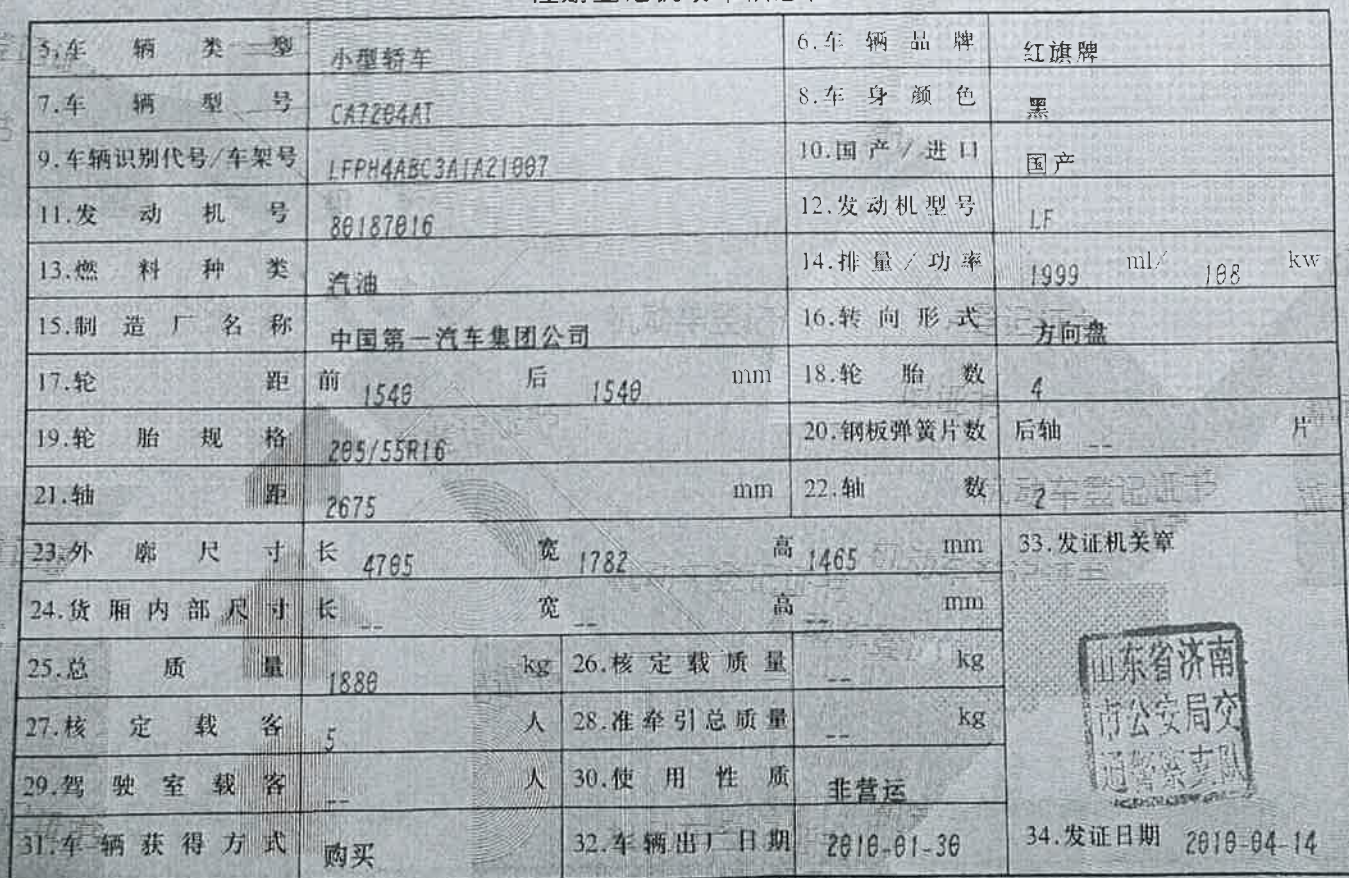 5.车辆类型 小型轿车 6.车辆品牌 红旗牌
7.车辆型号 CA7204AT 8.车身颜色 黑
9.车辆识别代号/车架号 LFPH4ABC3A1A21007 10.国产/进口 国产
11.发动机号 80187016 12.发动机型号 LF
13.燃料种类 汽油 14.排量/功率 1999 ml/ 108 kw
15.制造厂名称 中国第一汽车集团公司 16.转向形式 方向盘
17.轮距 前 1540 后 1540 mm 18.轮胎数 4
19.轮胎规格 205/55R16 20.钢板弹簧片数 后轴 -- 片
21.轴距 2675 mm 22.轴数 2
23.外廓尺寸 长 4705 宽 1782 高 1465 mm 33.发证机关章
24.货厢内部尺寸 长 -- 宽 -- 高 -- mm
25.总质量 1880 kg 26.核定载质量 -- kg
27.核定载客 5 人 28.准牵引总质量 -- kg
29.驾驶室载客 -- 人 30.使用性质 非营运
山东省济南
市公安局交
通警察支队
31.车辆获得方式 购买 32.车辆出厂日期 2010-01-30 34.发证日期 2010-04-14